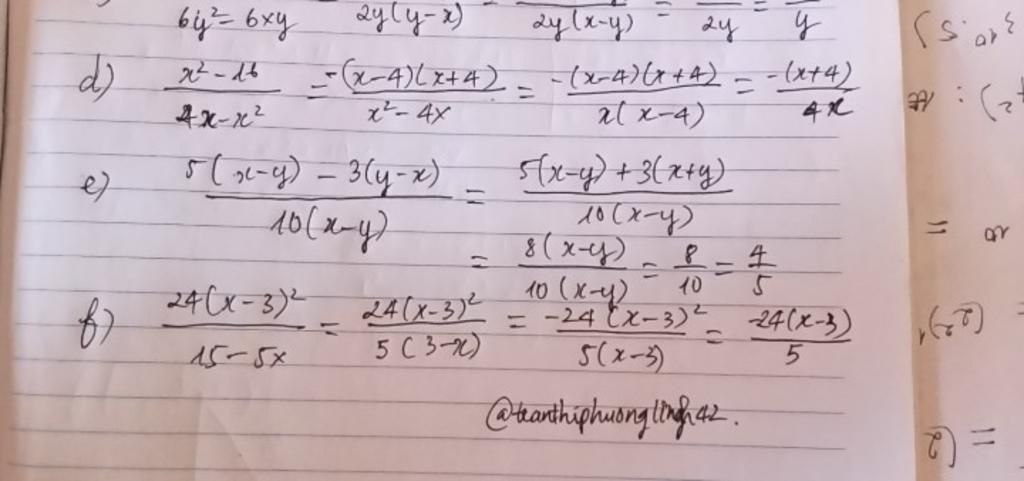 6y² = 6xy 2y(y-x) 2y(x-y) = 2y = y
d) x² - 16 / 4x - x² = -(x-4)(x+4) / x² - 4x = -(x-4)(x+4) / x(x-4) = -(x+4) / 4x
e) 5(x-y) - 3(y-x) / 10(x-y) = 5(x-y) + 3(x+y) / 10(x-y)
= 8(x-y) / 10(x-y) = 8 / 10 = 4 / 5
f) 24(x-3)² / 15 - 5x = 24(x-3)² / 5(3-x) = -24(x-3)² / 5(x-3) = -24(x-3) / 5
@tranthiphuonglinh42.